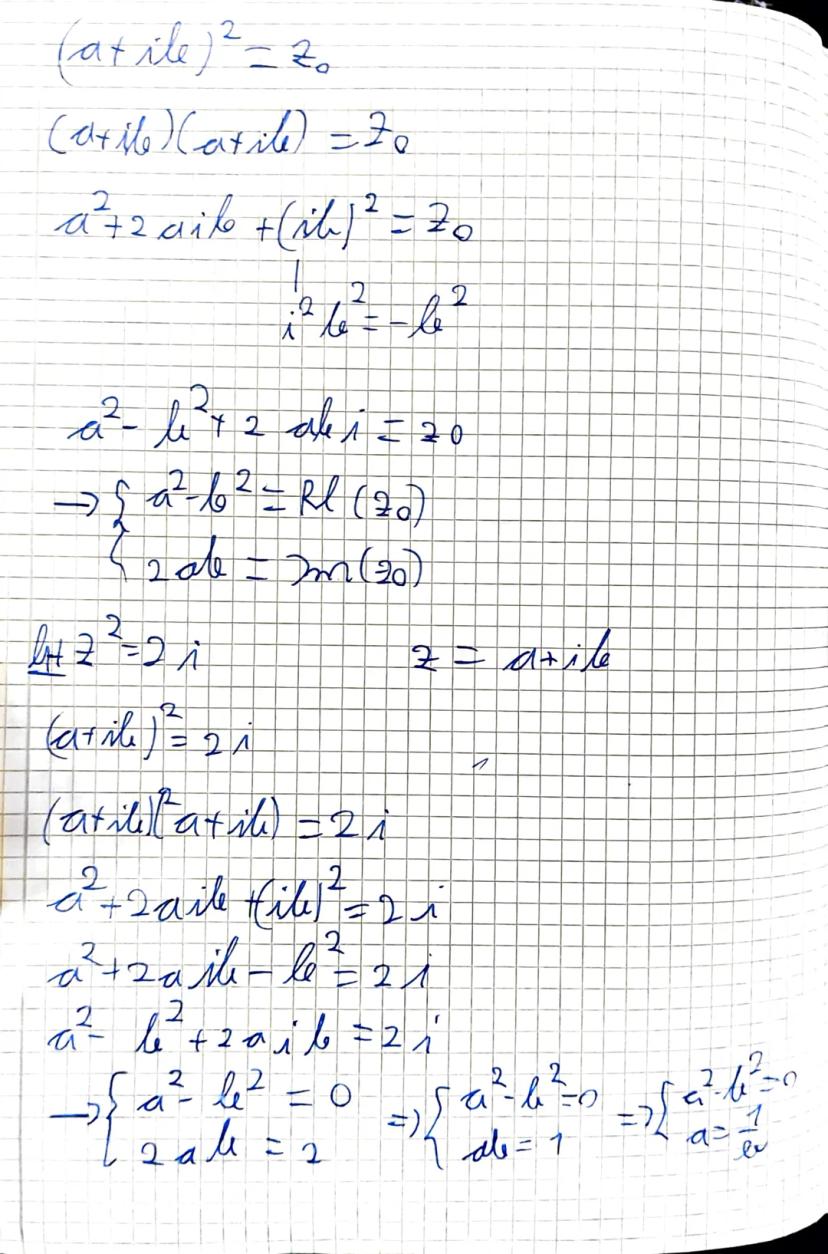 (a+ib)² = z₀
(a+ib)(a+ib) = z₀
a²+2aib+(ib)² = z₀
i²b² = -b²
a²-b²+2abi = z₀
→ { a²-b² = Re(z₀)
{ 2ab = Im(z₀)
z² = 2i z = a+ib
(a+ib)² = 2i
(a+ib)(a+ib) = 2i
a²+2aib+(ib)² = 2i
a²+2aib-b² = 2i
a²-b²+2aib = 2i
→ { a²-b² = 0 => { a²-b² = 0 => { a²-b² = 0
2ab = 2 ab = 1 a = 1/b